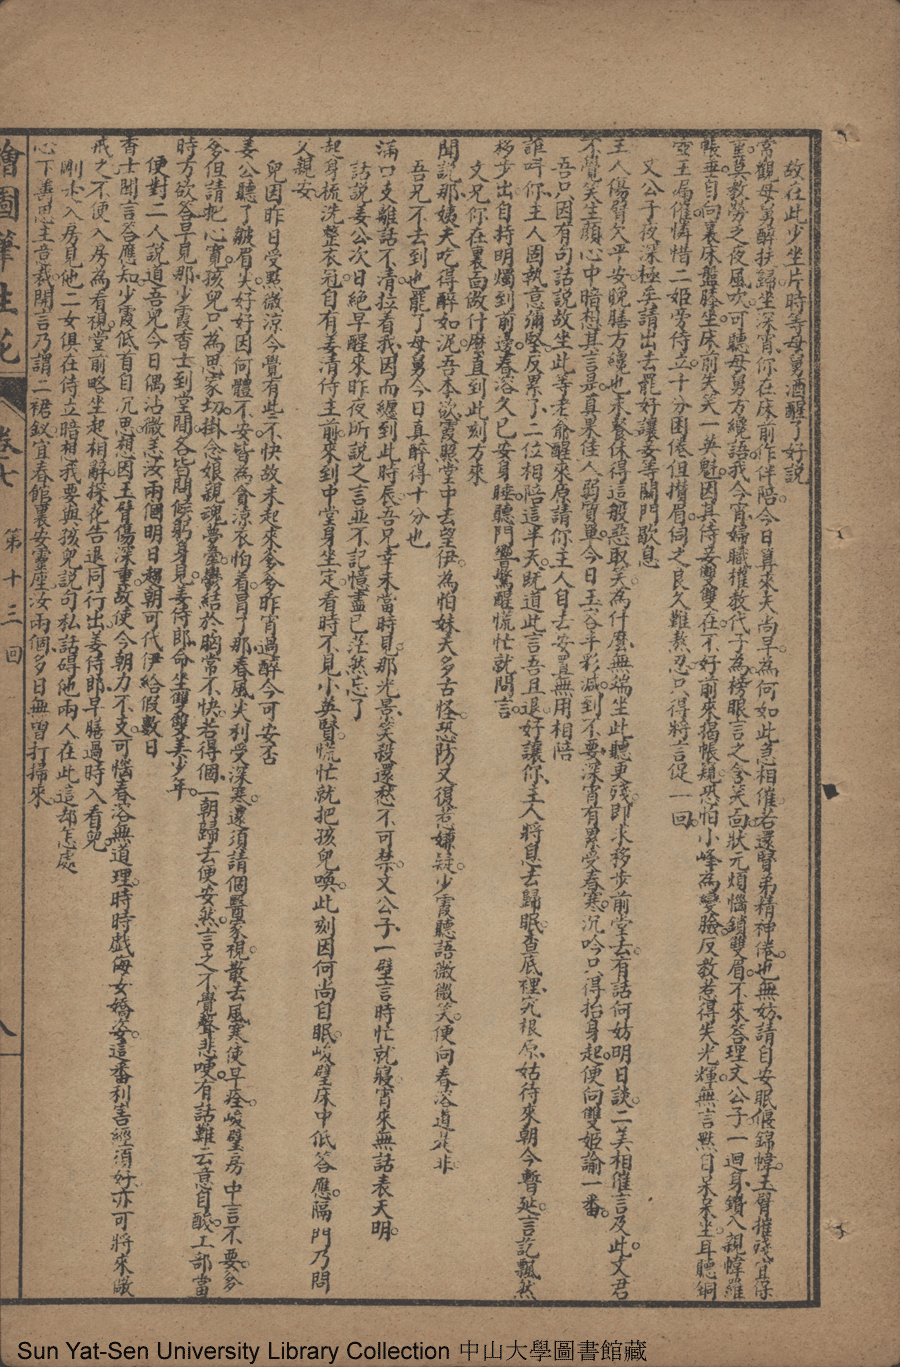 故在此少坐片時等母舅酒醒了好說
常觀母舅醉扶歸坐深宵你在床前作伴陪今日算來夫尚早為何如此急相催若還賢弟精神倦也無妨請自安眠偃錦幃玉臂摧殘宜保
重莫教勞之夜風吹可聽母舅方纔語我今宵婦職權教代子為楞眼言之含笑面狀元煩惱鎖雙眉不來答理文公子一迴身鑽入親幃羅
帳垂自向裏床盤膝坐床前失笑一英魁因其侍妾雙雙在不好前來揭帳窺恐怕小峰為變臉反教惹得失光輝無言默自呆呆坐耳聽銅
壺玉漏催憐惜二姬旁侍立十分困倦但攢眉伺之良久難熬忍只得將言促一回
文公子夜深極矣請出去罷好讓妾等關門歇息
主人傷臂欠平安晚膳方纔也未餐休得這般惡取笑為什麼無端坐此聽更殘即求移步前堂去有話何妨明日談二美相催言及此文君
不覺笑生顏心中暗想其言是真果佳人弱質單今日玉容平彩減到不要深宵有累受春寒沉吟只得抬身起便向雙姬諭一番
吾只因有句話說故坐此等老爺醒來原請你主人自去安置無用相陪
誰叫你主人固執意彌堅反累了二位相陪這半天既道此言吾且退好讓你主人將息去歸眠查底裡究根原姑待來朝今暫延言訖飄然
移步出自持明燭到前邊春溶久已安身睡聽門響驚醒慌忙就問言
文兄你在裏面做什麼直到此刻方來
聞說那姨夫吃得醉如泥吾本欲霞照堂中去望伊為怕妹夫多古怪恐防又復惹嫌疑少霞聽語微微笑便向春溶道是非
吾兄不去到也罷了母舅今日真醉得十分也
滿口支離話不清拉着我因而纏到此時辰吾兄幸未當時見那光景笑殺還愁不可禁文公子一壁言時忙就寢宵來無話表天明
話說姜公次日絕早醒來昨夜所說之言並不記憶盡已茫然忘了
起身梳洗整衣冠自有姜清侍主前來到中堂身坐定看時不見小英賢慌忙就把孩兒喚此刻因何尚自眠峻璧床中低答應隔門乃問
父親安
兒因昨日受點微涼今覺有些不快故未起來爹爹昨宵過醉今可安否
姜公聽了皺眉尖好好因何體不安皆為貪涼衣怕着冒了那春風尖利受深寒還須請個醫家視散去風寒使早痊峻璧房中言不要爹
爹但請把心寬孩兒只為思家切掛念娘親魂夢牽鬱結於胸常不快若得個一朝歸去便安然言之不覺聲悲哽有話難云意自酸工部當
時方欲答早見那少霞香士到堂間各皆問候躬身見姜侍郎命坐雙雙美少年
便對二人說道吾兒今日偶沾微恙汝兩個明日趨朝可代伊給假數日
香士聞言答應知少霞低首自沉思想因玉臂傷深重故使今朝力不支可惱春溶無道理時時戲侮女嬌姿這番利害經須好亦可將來儆
戒之不便入房為看視堂前略坐起相辭探花告退同行出姜侍郎早膳過時入看兒
剛步入房見他二女俱在侍立暗想我要與孩兒說句私話碍他兩人在此這却怎處
心下籌思主意裁開言乃謂二裙釵宜春館裏安靈座汝兩個多日無曾打掃來
繪圖筆生花
卷七
第十三回
八
Sun Yat-Sen University Library Collection 中山大學圖書館藏